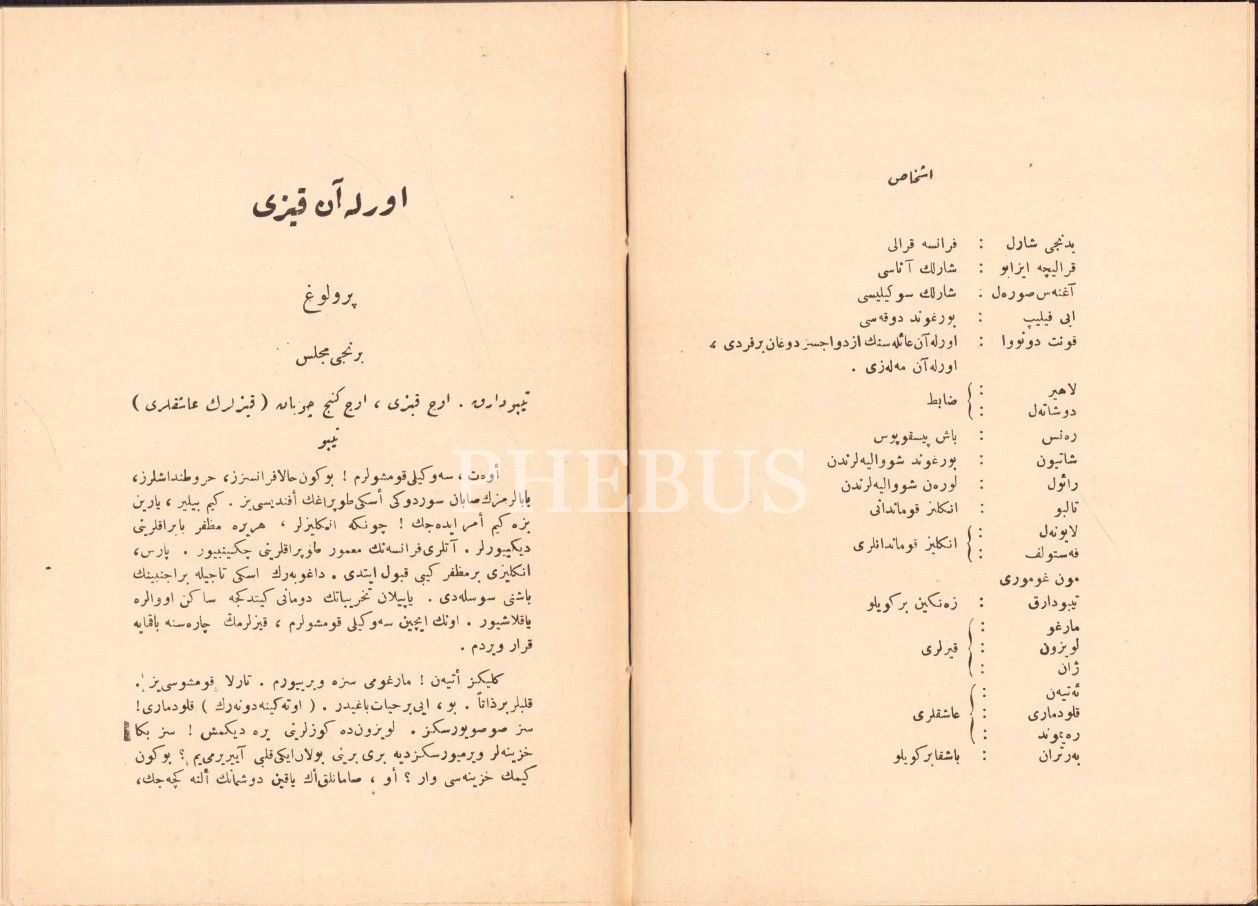 اشخاص
يدنجى شارل : فرانسه قرالى
قراليچه ايزابو : شارلك آناسى
آغنه‌س صوره‌ل : شارلك سوكيليسى
ايى فيليپ : بورغوند دوقه‌سى
قونت دونووا : اورله‌آن عائله‌سنك ازدواجسز دوغان برفردى ،
اورله‌آن مه‌له‌زى .
لاهير :
دوشاتەل : ضابط
ره‌نس : باش پيسقوپوس
شاتيون : بورغوند شوواليه‌لرندن
رائول : لوره‌ن شوواليه‌لرندن
تالبو : انكليز قوماندانى
لايونه‌ل :
فه‌ستولف : انكليز قوماندانلرى
مون غومورى
تيبودارق : زه‌نكين بركويلو
مارغو :
لويزون : قيزلرى
ژان :
ئه‌تيه‌ن :
قلودمارى : عاشقلرى
ره‌يموند :
به‌رتران : باشقابركويلو
اورله‌آن قيزى
پرولوغ
برنجى مجلس
تيبودارق . اوچ قيزى ، اوچ كنج چوبان ( قيزلرك عاشقلرى )
تيبو
أوه‌ت ، سه‌وكيلى قومشولرم ! بوكون حالا فرانسزز ، حر وطنداشلرز ،
بابالرمزك صاپان سوردوكى أسكى طوپراغك أفنديسى‌يز . كيم بيلير ، يارين
بزه كيم أمر ايده‌جك ! چونكه انكليزلر ، هريره مظفر بايراقلرينى
ديكييورلر . آتلرى فرانسه‌نك معمور طوپراقلرينى چكينييور . پارس ،
انكليزى برمظفر كيبى قبول ايتدى . داغوبه‌رك اسكى تاجيله براجنبينك
باشنى سوسله‌دى . ياپيلان تخريباتك دومانى كيتدكجه ساكن اووالره
ياقلاشيور . اونك ايچين سه‌وكيلى قومشولرم ، قيزلرمڭ چاره‌سنه باقمايه
قرار ويردم .
كليكز أتيه‌ن ! مارغومى سزه ويرييورم . تارلا قومشوسى‌يز .
قلبلر برذاتاً . بو ، ايى برحيات باغيدر . ( اوته‌كينه دونه‌رك ) قلودمارى !
سز صوصويورسكز . لويزون‌ده كوزلرينى يره ديكمش ! سز بكا
خزينه‌لر ويرميورسكز ديه برى برينى بولان ايكى قلبى آييرير مى‌يم ؟ بوكون
كيمك خزينه‌سى وار ؟ أو ، صامانلق أك ياقين دوشمانك ألنه كچه‌جك ،
PHEBUS